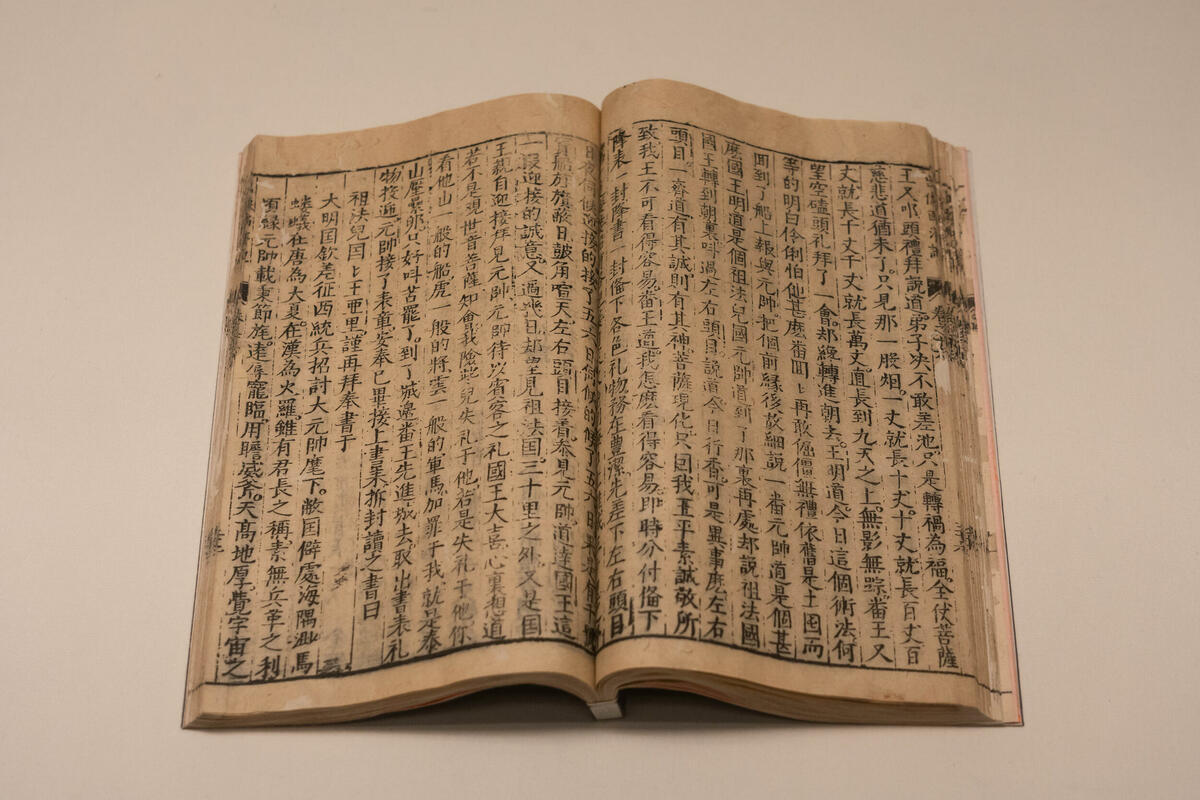 王又叩頭禮拜說道弟子央不敢差池只是轉禍為福全仗菩薩
慈悲道猶未了。只見那一股烟一丈就長十丈十丈就長百丈百
丈就長千丈千丈就長萬丈。直長到九天之上。無影無踪。番王又
望空磕頭礼拜了一會。却纔轉進朝去。王明道。今日這個術法何
等的明白伶俐怕他甚麽番囬ヒ再敢倔僵無禮依舊是土囤而
囬到了船上報與元帥。把個前緣後故細說一番元帥道是個甚
麽國王明道是個祖法兒國元帥道到了那裏再處却說祖法國
國王轉到朝裏叫過左右頭目說道今日行香可是異事麽左右
頭目一齊道有其誠則有其神菩薩現化只因我王平素誠敬所
致我王不可看得容易番王道我怎麽看得容易即時分付俻下
降表一封降書一封俻下各色礼物務在豐潔先差下左右頭目
迎接的接了五六日
旌旗蔽日皷角喧天左右頭目接着叅見元帥道達國王這
一段迎接的誠意又過幾日却望見祖法国三十里之外又是国
王親自迎接拜見元帥元帥待以賓客之礼國王大喜心裏想道
若不是現世音菩薩知會我險些兒失礼于他若是失礼于他你
看他山一般的船虎一般的將雲一般的軍馬加罪于我就是泰
山壓卵只好叫苦罷了。到了城邉番王先進城去取出書表礼
物投逓元帥接了表章安奉已畢接上書來拆封讀之書曰
祖法兒国ヒ王亜里。謹再拜奉書于
大明国欽差征西統兵招討大元帥麾下。敝国僻處海隅
在唐為大夏。在漢為火羅。雖有君長之稱素無兵革之利
元帥載秉節旄。逺辱寵臨用瞻威斧。天高地厚。覺宇宙之